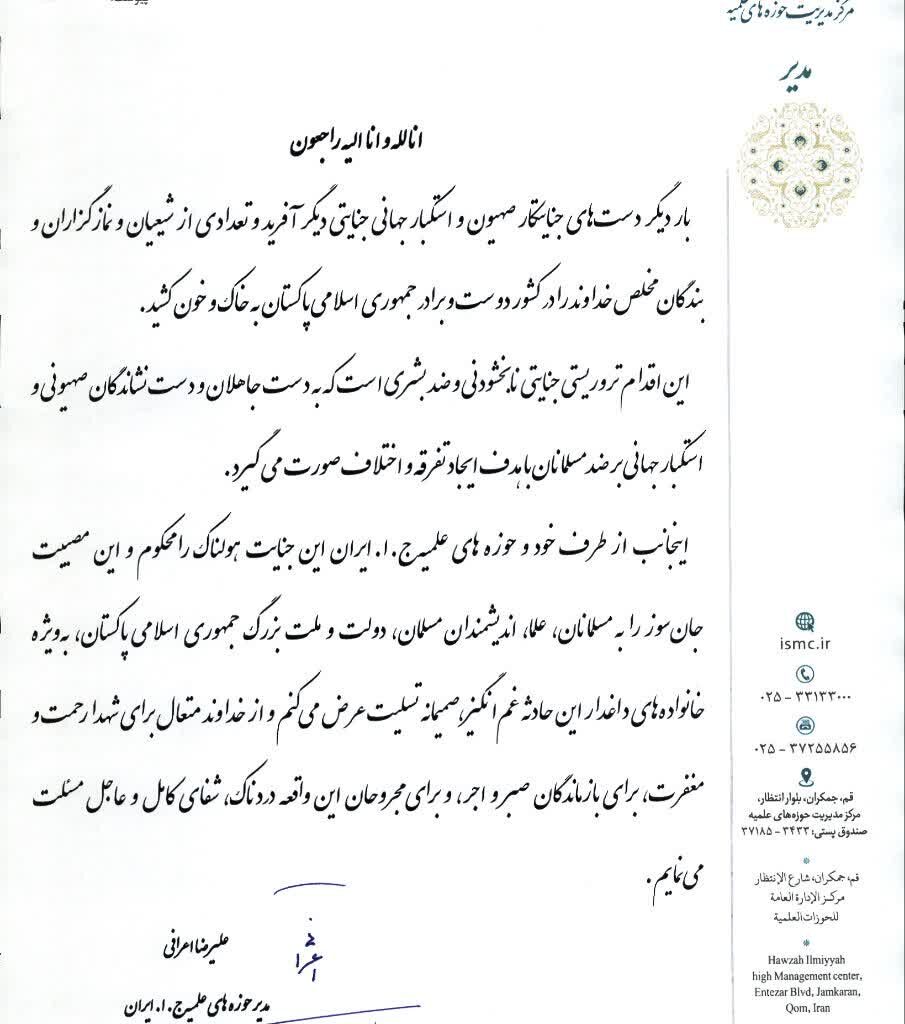 مرکز مدیریت حوزه های علمیه
مدیر
انا لله و انا الیه راجعون
بار دیگر دست‌های جنایتکار صهیون و استکبار جهانی جنایتی دیگر آفرید و تعدادی از شیعیان و نمازگزاران و
بندگان مخلص خداوند را در کشور دوست و برادر جمهوری اسلامی پاکستان به خاک و خون کشید.
این اقدام تروریستی جنایتی نابخشودنی و ضد بشری است که به دست جاهلان و دست نشاندگان صهیونی و
استکبار جهانی بر ضد مسلمانان با هدف ایجاد تفرقه و اختلاف صورت می گیرد.
اینجانب از طرف خود و حوزه های علمیه ج.ا. ایران این جنایت هولناک را محکوم و این مصیبت
جان سوز را به مسلمانان، علما، اندیشمندان مسلمان، دولت و ملت بزرگ جمهوری اسلامی پاکستان، به‌ویژه
خانواده های داغدار این حادثه غم انگیز، صمیمانه تسلیت عرض می کنم و از خداوند متعال برای شهدا رحمت و
مغفرت، برای بازماندگان صبر و اجر، و برای مجروحان این واقعه دردناک، شفای کامل و عاجل مسئلت
می نمایم.
علیرضا اعرافی
مدیر حوزه های علمیه ج.ا. ایران
ismc.ir
۰۲۵ – ۳۳۱۳۳۰۰۰
۰۲۵ – ۳۷۲۵۵۸۵۶
قم، جمکران، بلوار انتظار،
مرکز مدیریت حوزه‌های علمیه
صندوق پستی: ۳۴۳۳ – ۳۷۱۸۵
قم، جمکران، شارع الإنتظار
مرکـز الإدارة العامة
للحوزات العلمية
Hawzah Ilmiyyah
high Management center,
Entezar Blvd, Jamkaran,
Qom, Iran